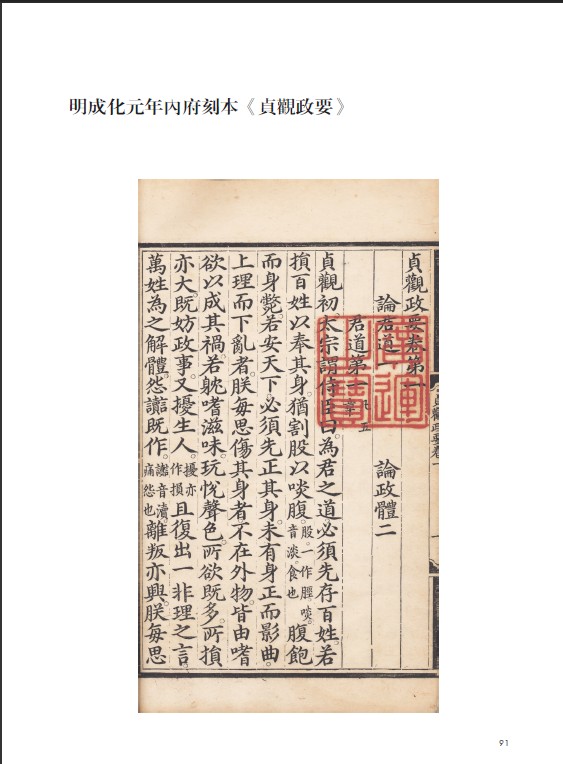 明成化元年內府刻本《貞觀政要》
貞觀政要卷第一
論君道一　論政體二
君道第一 凡五章
貞觀初。太宗謂侍臣曰。為君之道必須先存百姓。若
損百姓以奉其身。猶割股以啖腹。股。一作脛。啖音淡。食也腹飽
而身斃。若安天下。必須先正其身。未有身正而影曲。
上理而下亂者。朕每思傷其身者不在外物。皆由嗜
欲以成其禍。若躭嗜滋味。玩悅聲色。所欲既多。所損
亦大。既妨政事。又擾生人。擾亦作損且復出一非理之言。
萬姓為之解體。怨讟既作。讟音瀆。痛怨也離叛亦興。朕每思
廣運之寶
貞觀政要卷一
91